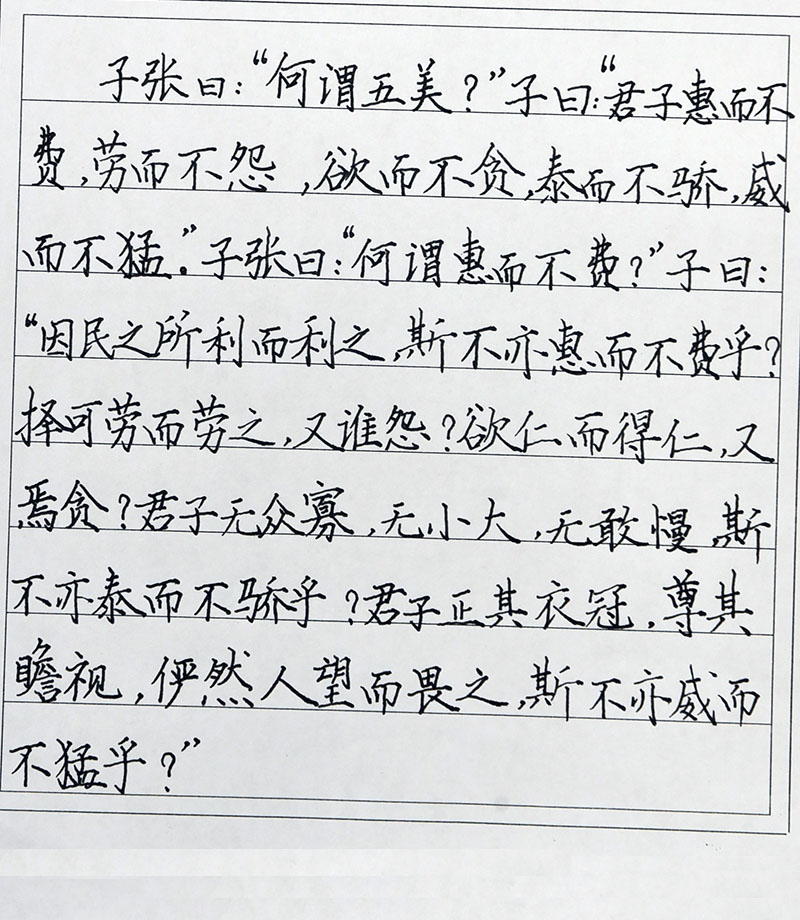 子张曰：“何谓五美？”子曰：“君子惠而不
费，劳而不怨，欲而不贪，泰而不骄，威
而不猛。”子张曰：“何谓惠而不费？”子曰：
“因民之所利而利之，斯不亦惠而不费乎？
择可劳而劳之，又谁怨？欲仁而得仁，又
焉贪？君子无众寡，无小大，无敢慢，斯
不亦泰而不骄乎？君子正其衣冠，尊其
瞻视，俨然人望而畏之，斯不亦威而
不猛乎？”